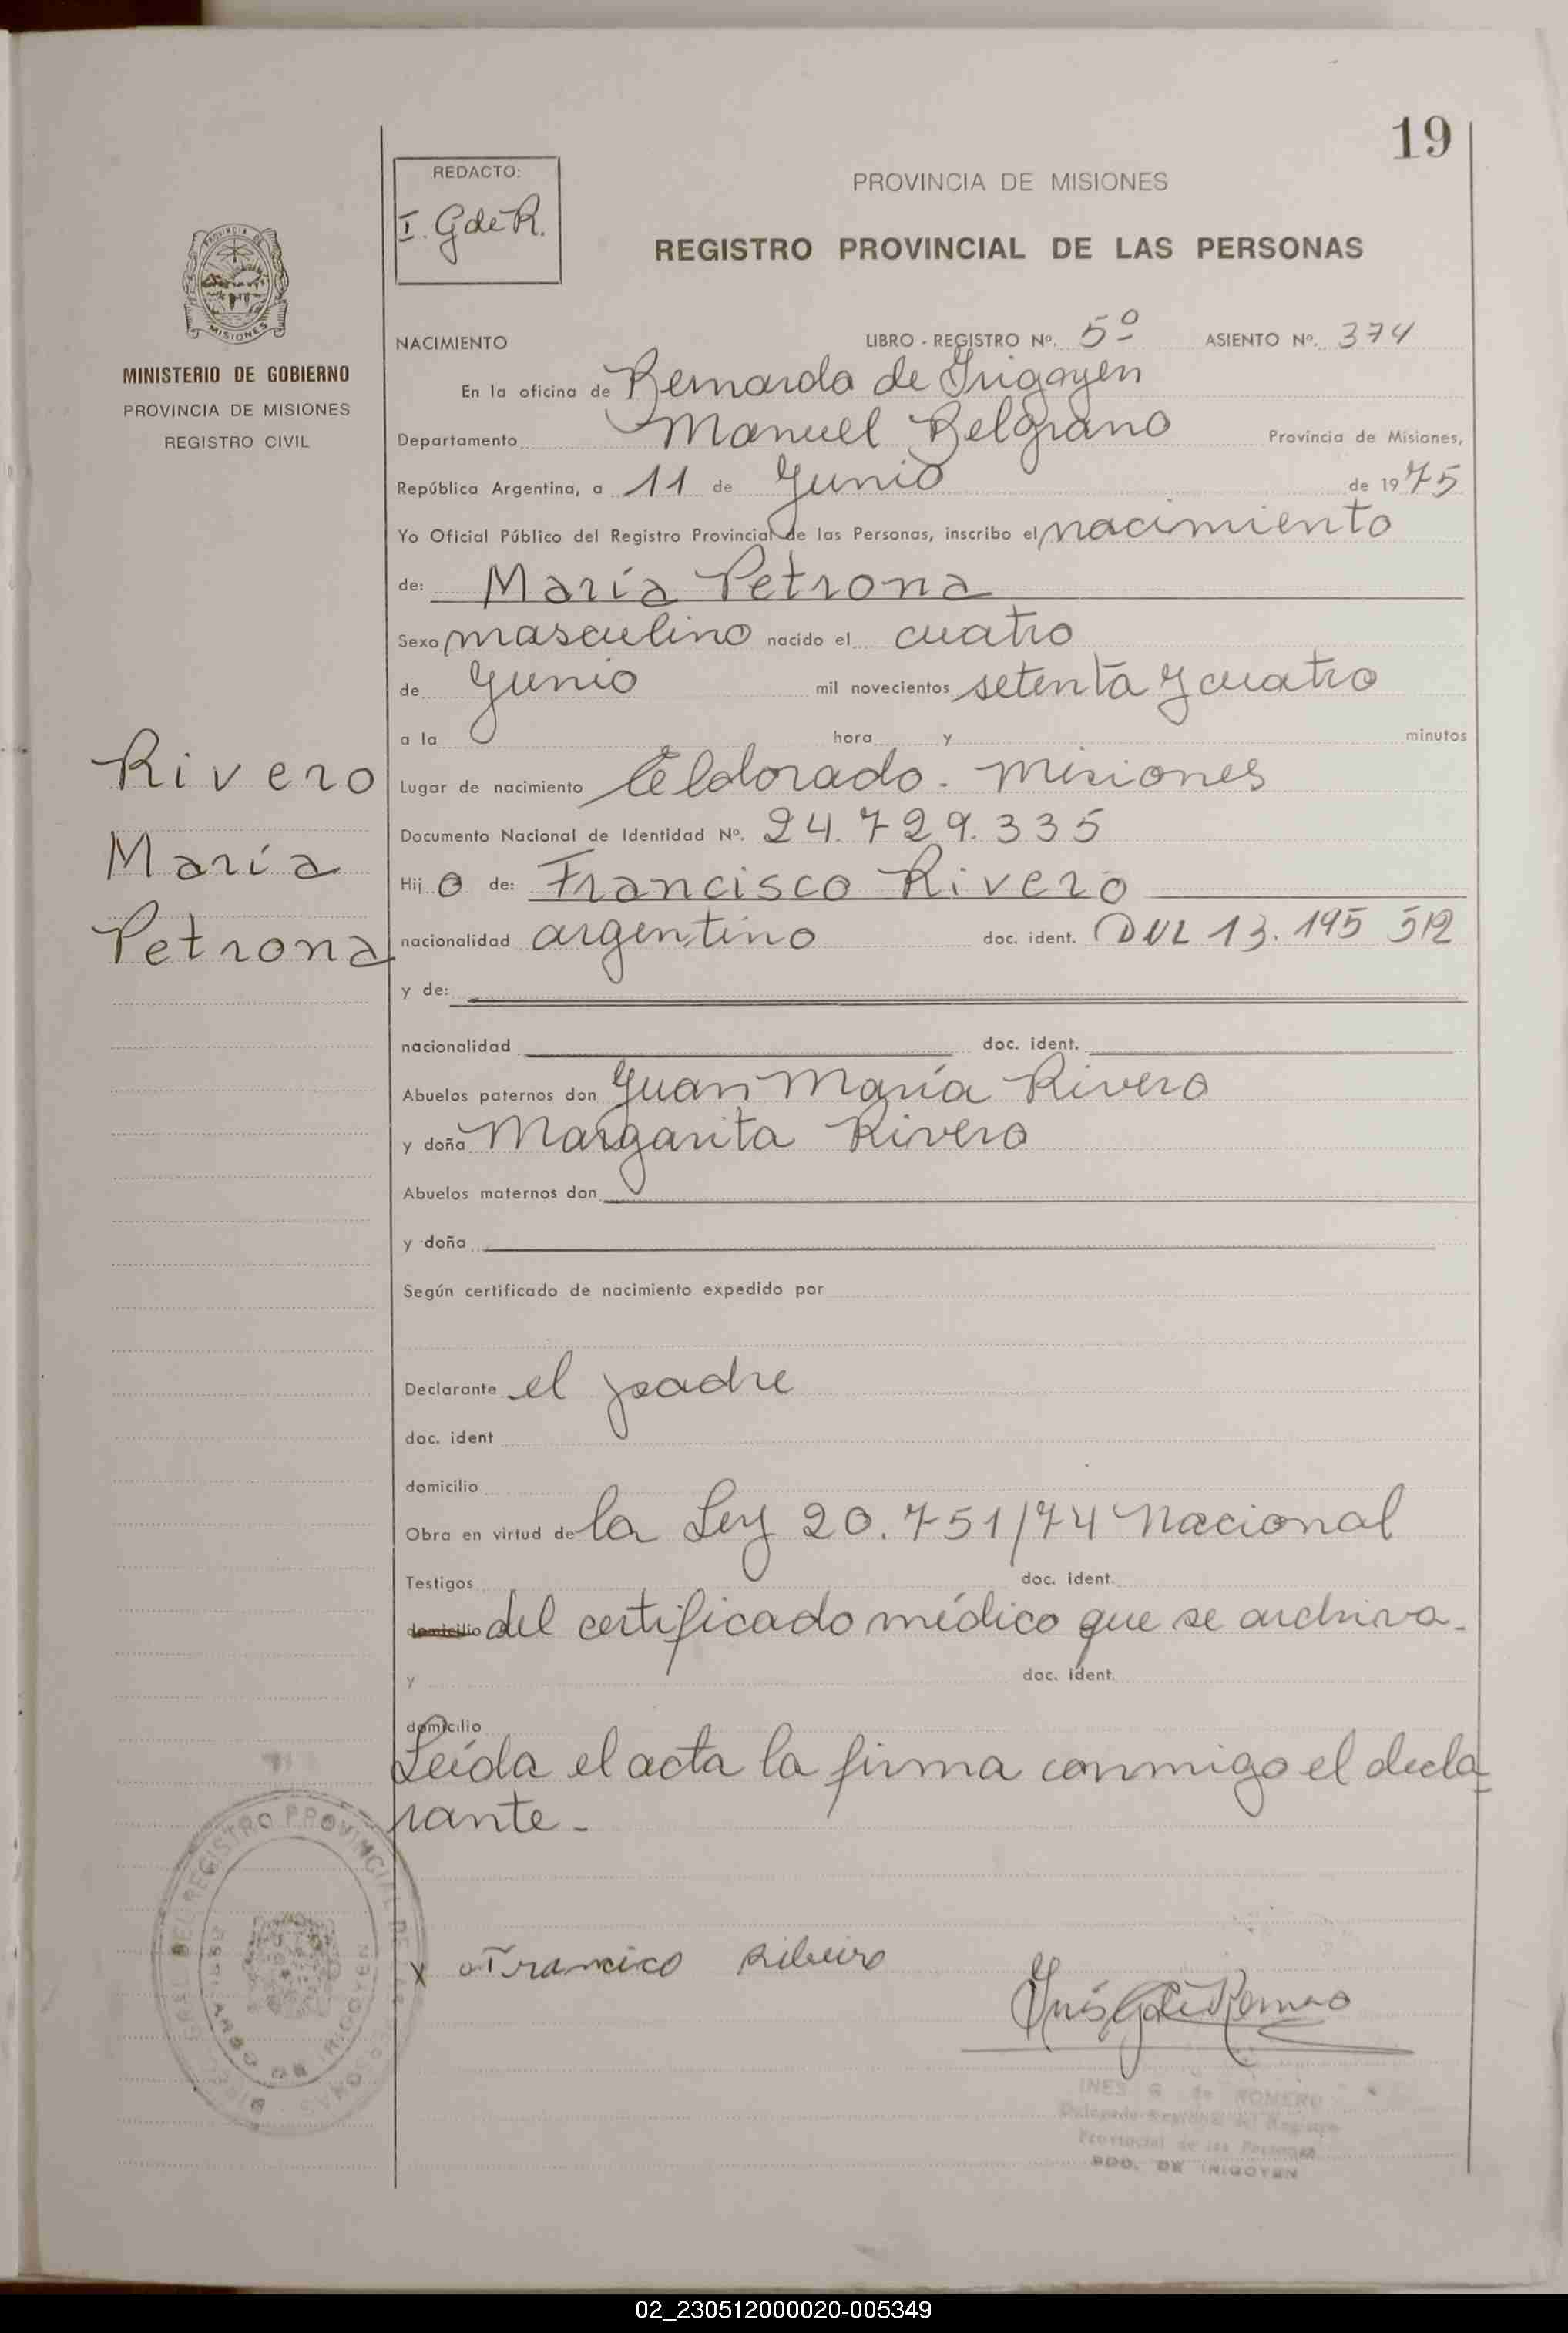 19
REDACTO:
I. G de R.
PROVINCIA DE MISIONES
REGISTRO PROVINCIAL DE LAS PERSONAS
PROVINCIA DE
MISIONES
MINISTERIO DE GOBIERNO
PROVINCIA DE MISIONES
REGISTRO CIVIL
NACIMIENTO LIBRO - REGISTRO Nº. 5º ASIENTO Nº. 374
En la oficina de Bernardo de Irigoyen
Departamento Manuel Belgrano Provincia de Misiones,
República Argentina, a 11 de Junio de 1975
Yo Oficial Público del Registro Provincial de las Personas, inscribo el nacimiento
de: María Petrona
Sexo masculino nacido el cuatro
de Junio mil novecientos setenta y cuatro
a la hora y minutos
Rivero
María
Petrona
Lugar de nacimiento Eldorado - Misiones
Documento Nacional de Identidad Nº. 24.729.335
Hij o de: Francisco Rivero
nacionalidad argentino doc. ident. DNI 13.195 512
y de:
nacionalidad doc. ident.
Abuelos paternos don Juan María Rivero
y doña Margarita Rivero
Abuelos maternos don
y doña
Según certificado de nacimiento expedido por
Declarante el padre
doc. ident
domicilio
Obra en virtud de la Ley 20.751/74 Nacional
Testigos doc. ident.
domicilio del certificado médico que se archiva.
y doc. ident.
domicilio
Leída el acta la firma conmigo el decla
rante -
x Francisco Ribeiro
Inés G de Romero
INES G de ROMERO
Delegada Regional del Registro
Provincial de las Personas
BDO. DE IRIGOYEN
DEL REGISTRO PROVINCIAL DE
02_230512000020-005349